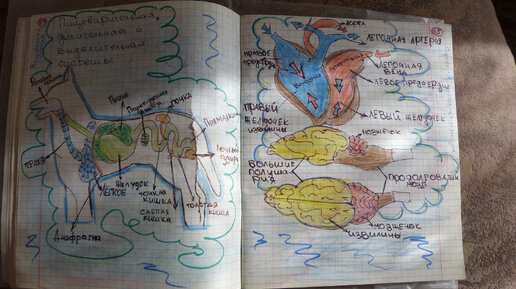 Пищеварительная,
дыхательная и
выделительная
системы
Печень
Поджелудочная
железа
почка
Прямая кишка
Мочевой
пузырь
трахея
Лёгкое
Желудок
тонкая
кишка
слепая
кишка
толстая
кишка
Диафрагма
аорта
лёгочная артерия
правое
предсердие
лёгочная
вена
левое предсердие
правый
желудочек
левый желудочек
извилины
мозжечок
большие
полуша
рия
продолговатый
мозг
мозжечок
извилины